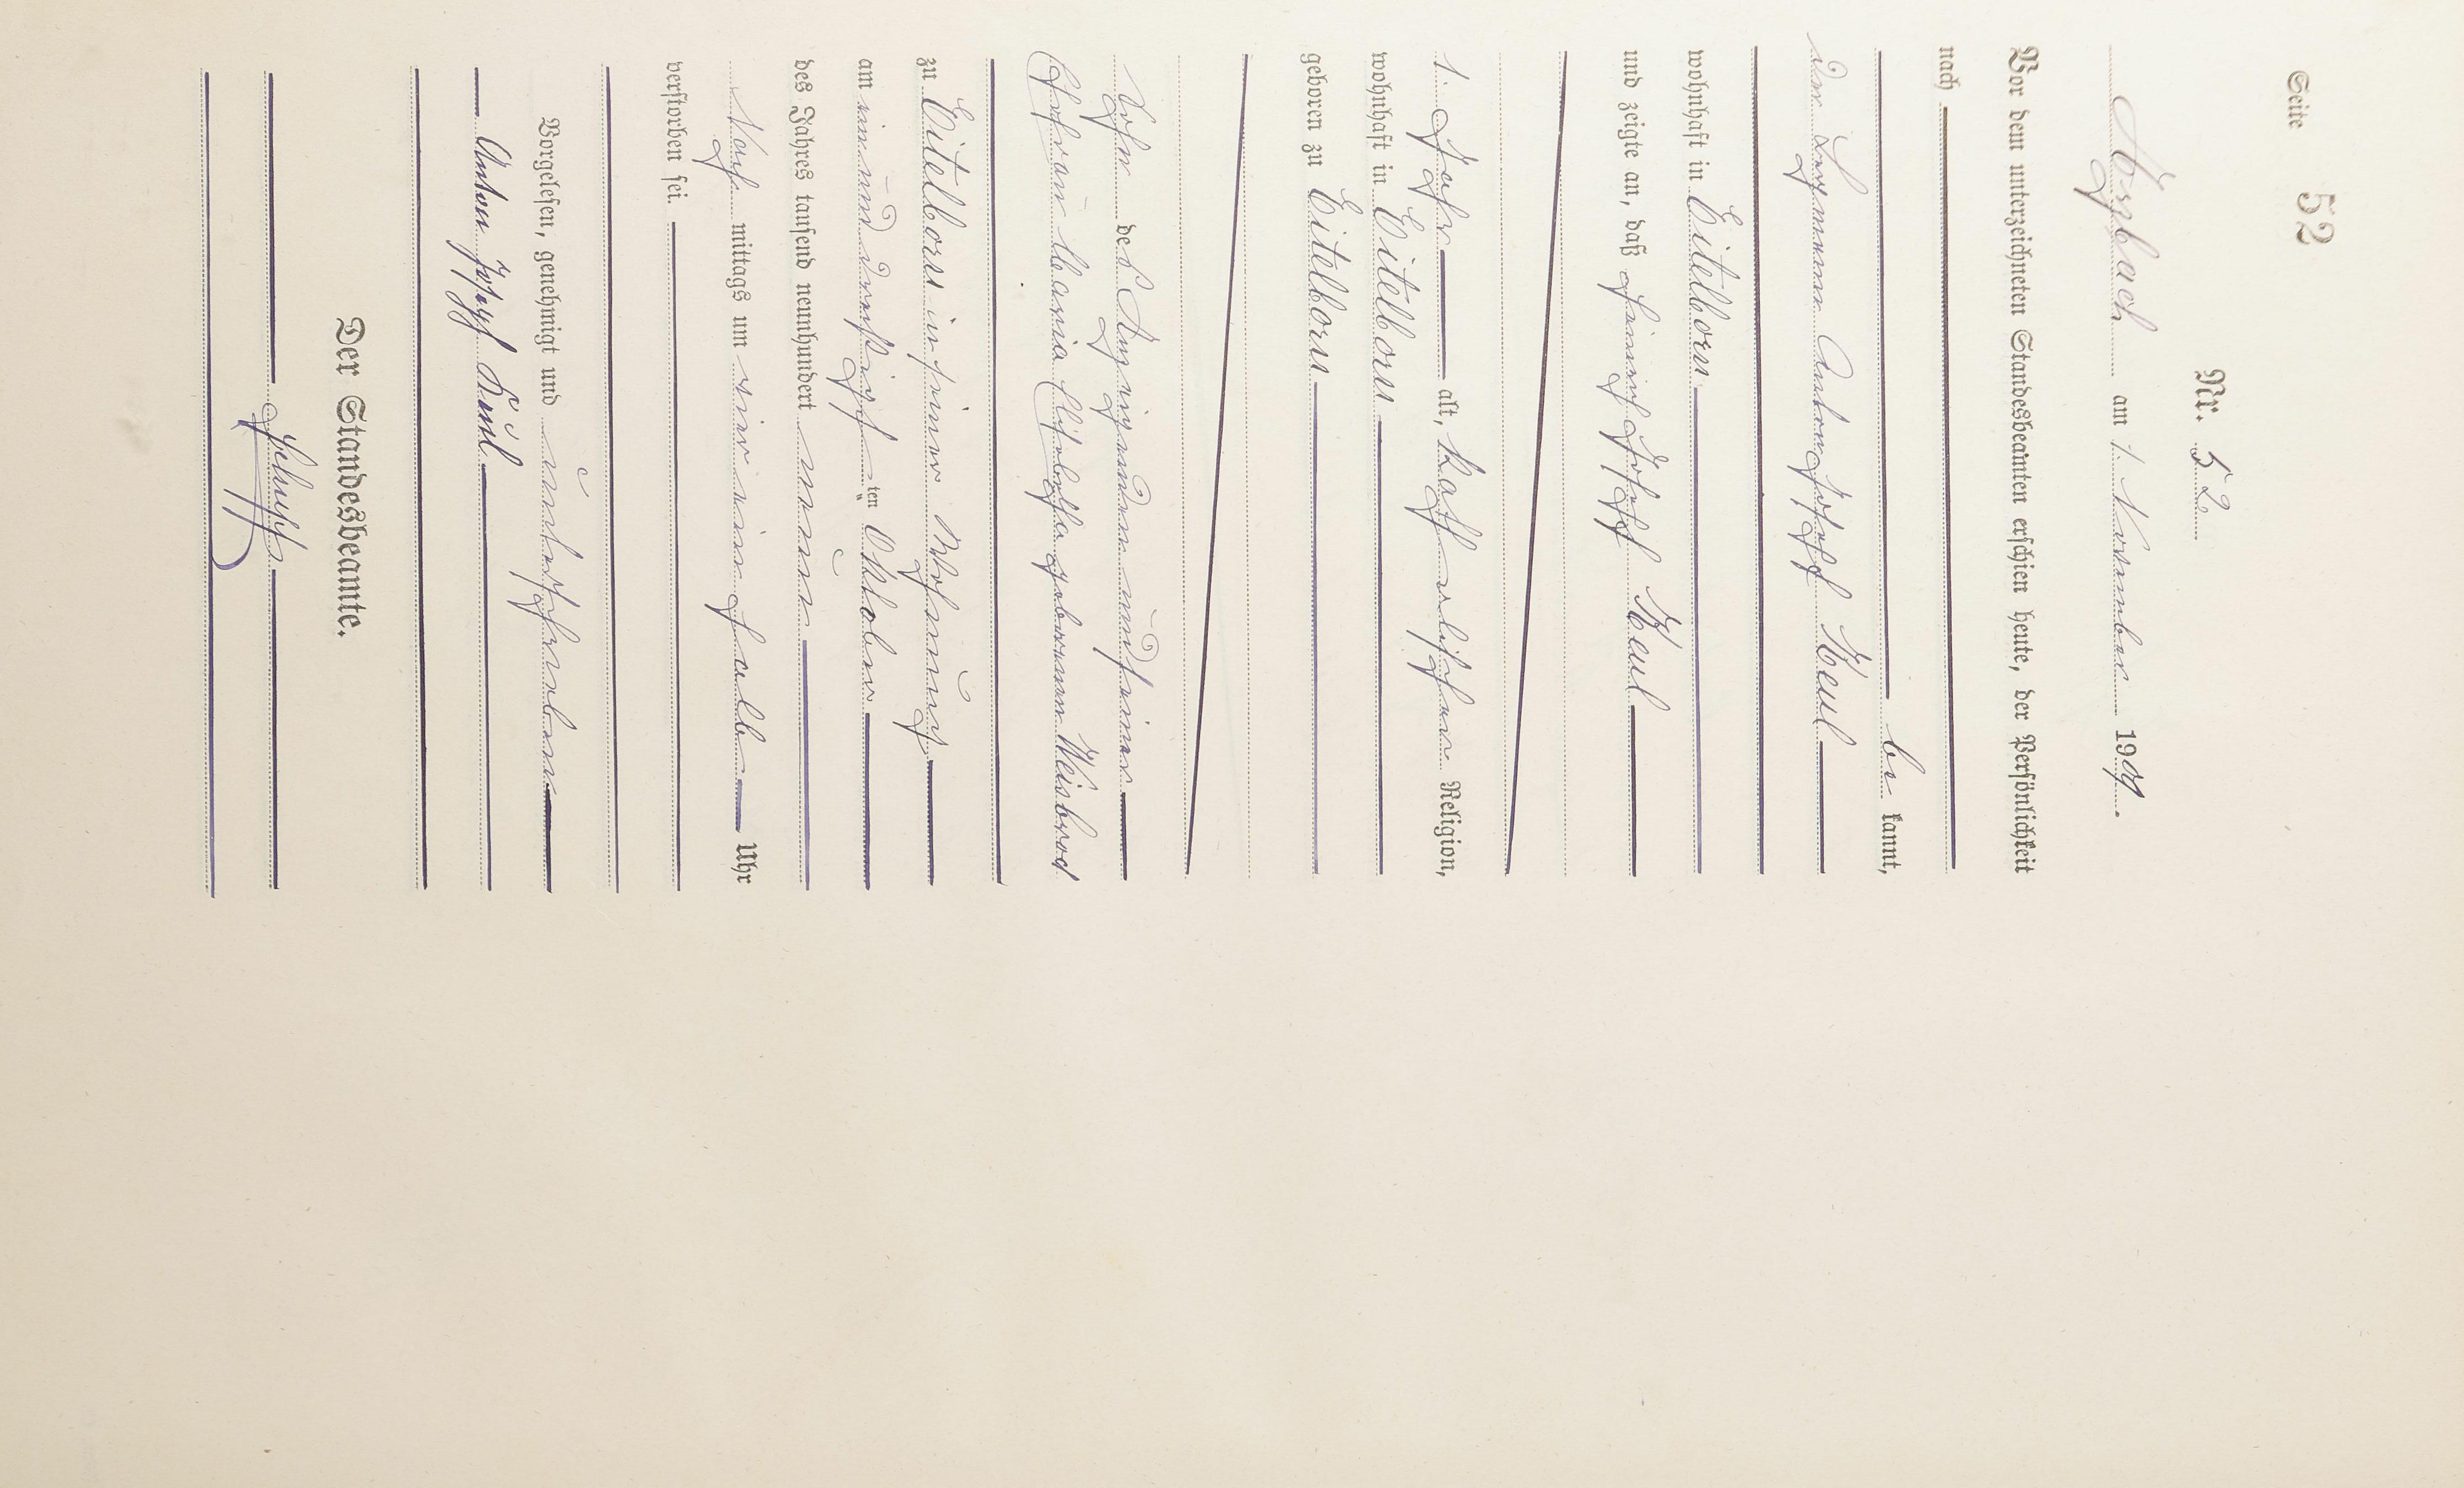 Seite 52
Nr. 52
Arzbach am 1. November 1909.
Vor dem unterzeichneten Standesbeamten erschien heute, der Persönlichkeit
nach
be kannt,
der Bergmann Anton Joseph Keul
wohnhaft in Eitelborn
und zeigte an, daß Heinrich Joseph Keul
1. Jahr alt, katholischer Religion,
wohnhaft in Eitelborn
geboren zu Eitelborn
Sohn des Anzeigenden und seiner
Ehefrau Maria Elisabetha geborenen Weisbrod
zu Eitelborn in seiner Wohnung
am ein und dreißigsten Oktober
des Jahres tausend neunhundert neun
Nach mittags um vier ein halb Uhr
verstorben sei.
Vorgelesen, genehmigt und unterschrieben
Anton Joseph Keul
Der Standesbeamte.